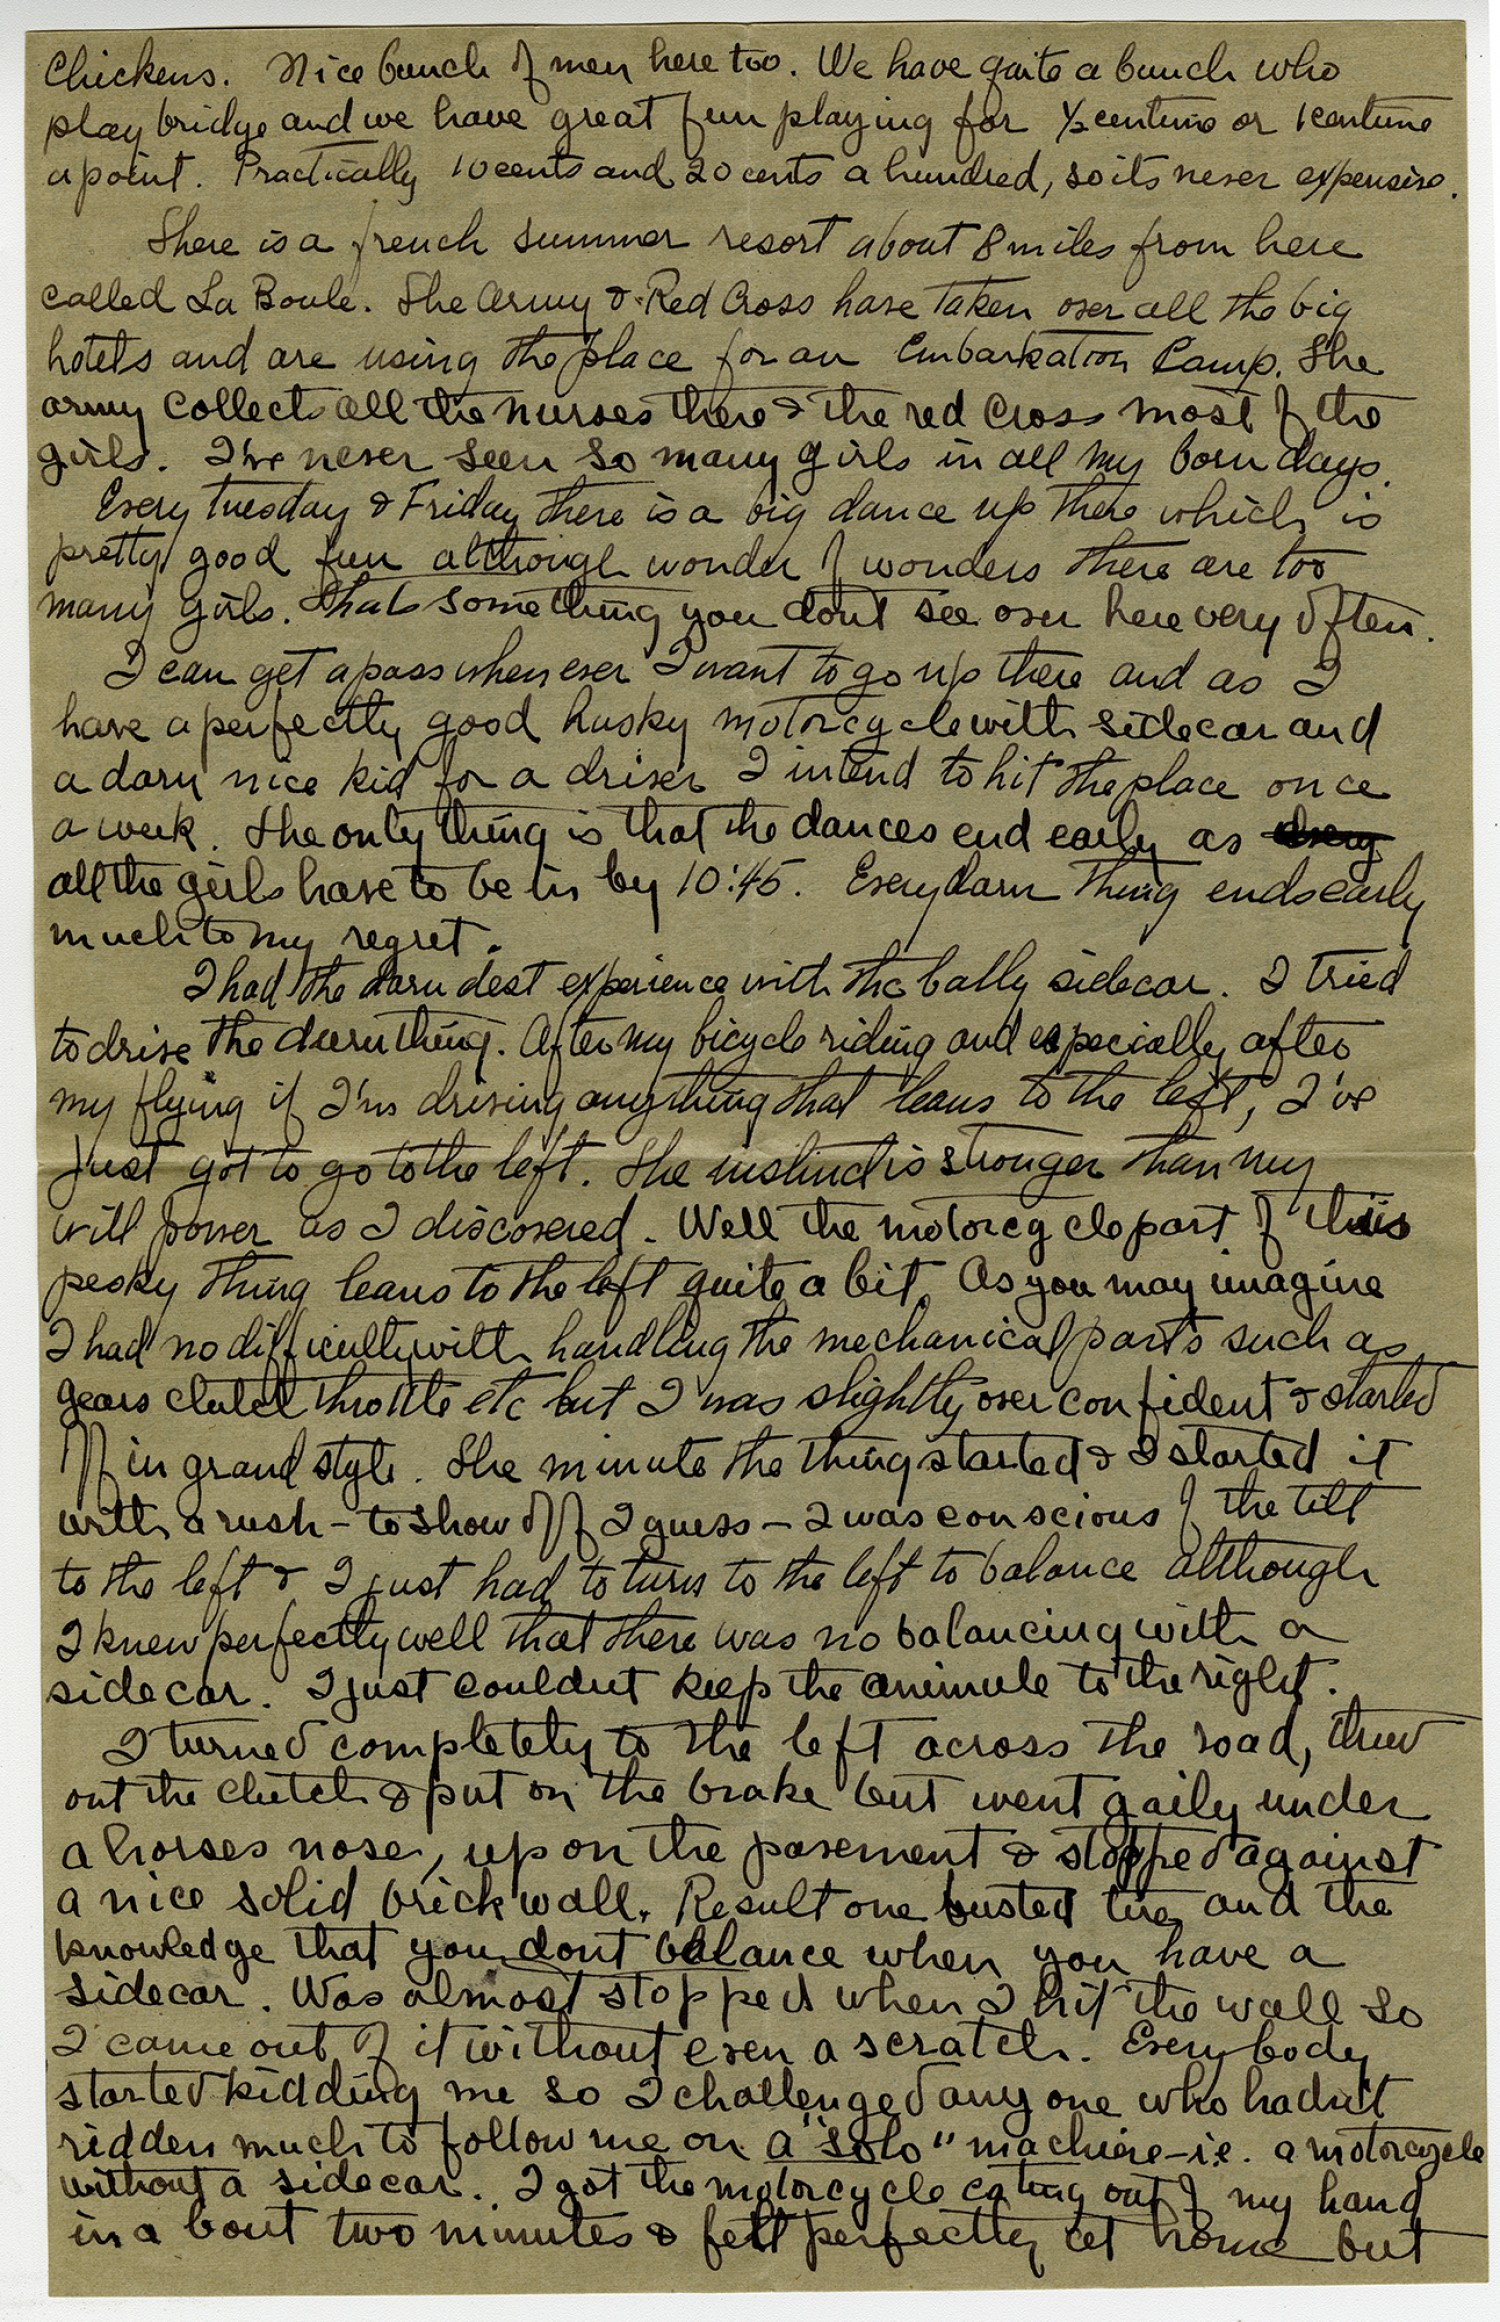 Chickens. Nice bunch of men here too. We have quite a bunch who
play bridge and we have great fun playing for ½ centime or 1 centime
a point. Practically 10 cents and 20 cents a hundred, so its never expensive.
There is a french summer resort about 8 miles from here
called La Boule. The Army & Red Cross have taken over all the big
hotels and are using the place for an Embarkation Camp. The
army collects all the nurses there & the red Cross most of the
girls. I've never seen so many girls in all my born days.
Every Tuesday & Friday there is a big dance up there which is
pretty good fun although wonder of wonders there are too
many girls. Thats something you dont see over here very often.
I can get a pass whenever I want to go up there and as I
have a perfectly good husky motorcycle with sidecar and
a darn nice kid for a driver I intend to hit the place once
a week. The only thing is that the dances end early as
all the girls have to be in by 10:45. Every darn thing ends early
much to my regret.
I had the darndest experience with the bally sidecar. I tried
to drive the durn thing. After my bicycle riding and especially after
my flying if I'm driving anything that leans to the left, I've
just got to go to the left. The instinct is stronger than my
will power as I discovered. Well the motorcycle part of this
pesky thing leans to the left quite a bit. As you may imagine
I had no difficulty with handling the mechanical parts such as
gears clutch throttle etc but I was slightly over confident & started
off in grand style. The minute the thing started & I started it
with a rush - to show off I guess - I was conscious of the tilt
to the left & I just had to turn to the left to balance although
I knew perfectly well that there was no balancing with a
sidecar. I just couldnt keep the animule to the right.
I turned completely to the left across the road, threw
out the clutch & put on the brake but went gaily under
a horses nose, up on the pavement & stopped against
a nice solid brick wall. Result one busted tire and the
knowledge that you dont balance when you have a
sidecar. Was almost stopped when I hit the wall so
I came out of it without even a scratch. Everybody
started kidding me so I challenged any one who hadn't
ridden much to follow me on a "solo" machine - i.e. a motorcycle
without a sidecar. I got the motorcycle eating out of my hand
in a bout two minutes & felt perfectly at home but